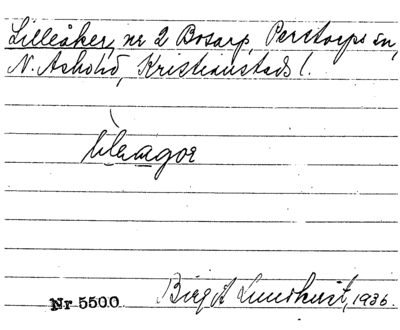 Lilleåker, nr 2 Bosarp, Perstorps sn,
N. Åsbo hd, Kristianstads l.
Nr 5500 Birgit Lundkvist, 1936.